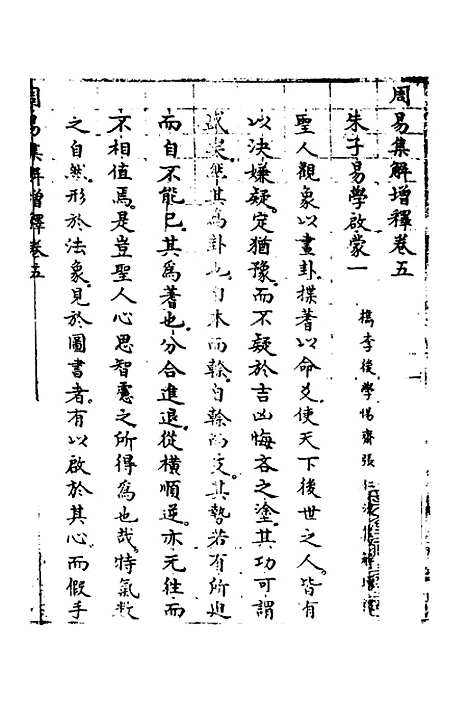 周易集解增釋卷五
朱子易學啟蒙一
檇李後學惕齋張仁
聖人觀象以畫卦揲蓍以命爻使天下後世之人皆有
以決嫌疑定猶豫而不疑於吉凶悔吝之塗其功可謂
盛矣然其為卦也自本而幹自幹而支其勢若有所迫
而自不能已其為蓍也分合進退從橫順逆亦无往而
不相值焉是豈聖人心思智慮之所得為也哉特氣數
之自然形於法象見於圖書者有以啟於其心而假手
周易集解增釋卷五